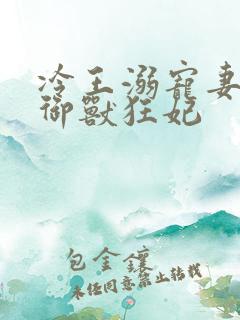 冷王溺寵妻
御獸狂妃
包金鑲
未经同意禁止转载